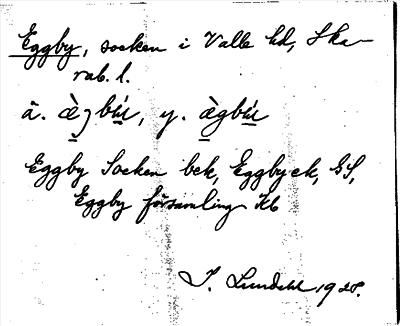 Eggby, socken i Valle hd, Ska-
rab. l.
ä. æ̀ȝbú, y. æ̀gbú
Eggby Socken bek, Eggby ek, GS,
Eggby församling Kb
I. Lundahl 1928.